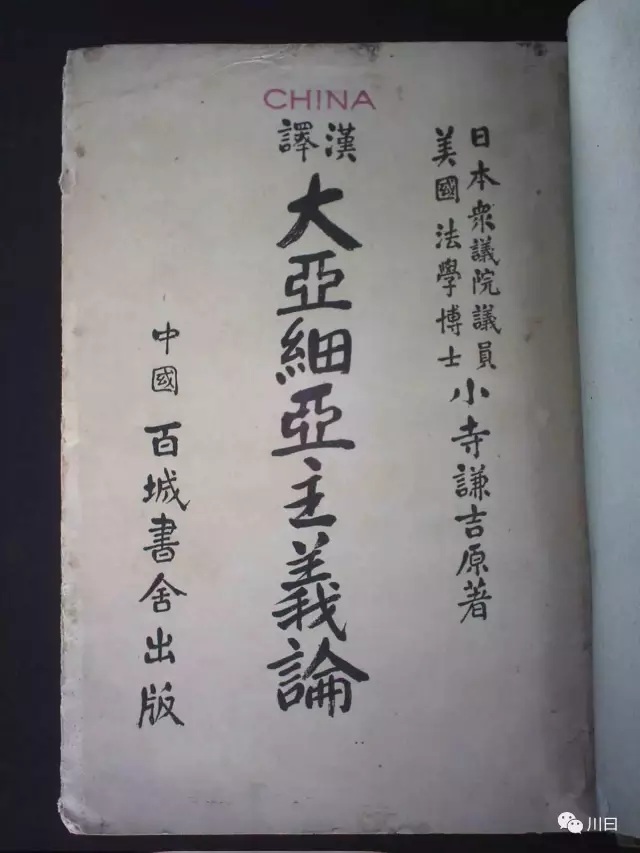 CHINA
日本衆議院議員
美國法學博士
小寺謙吉原著
漢譯
大亞細亞主義論
中國百城書舍出版
川日